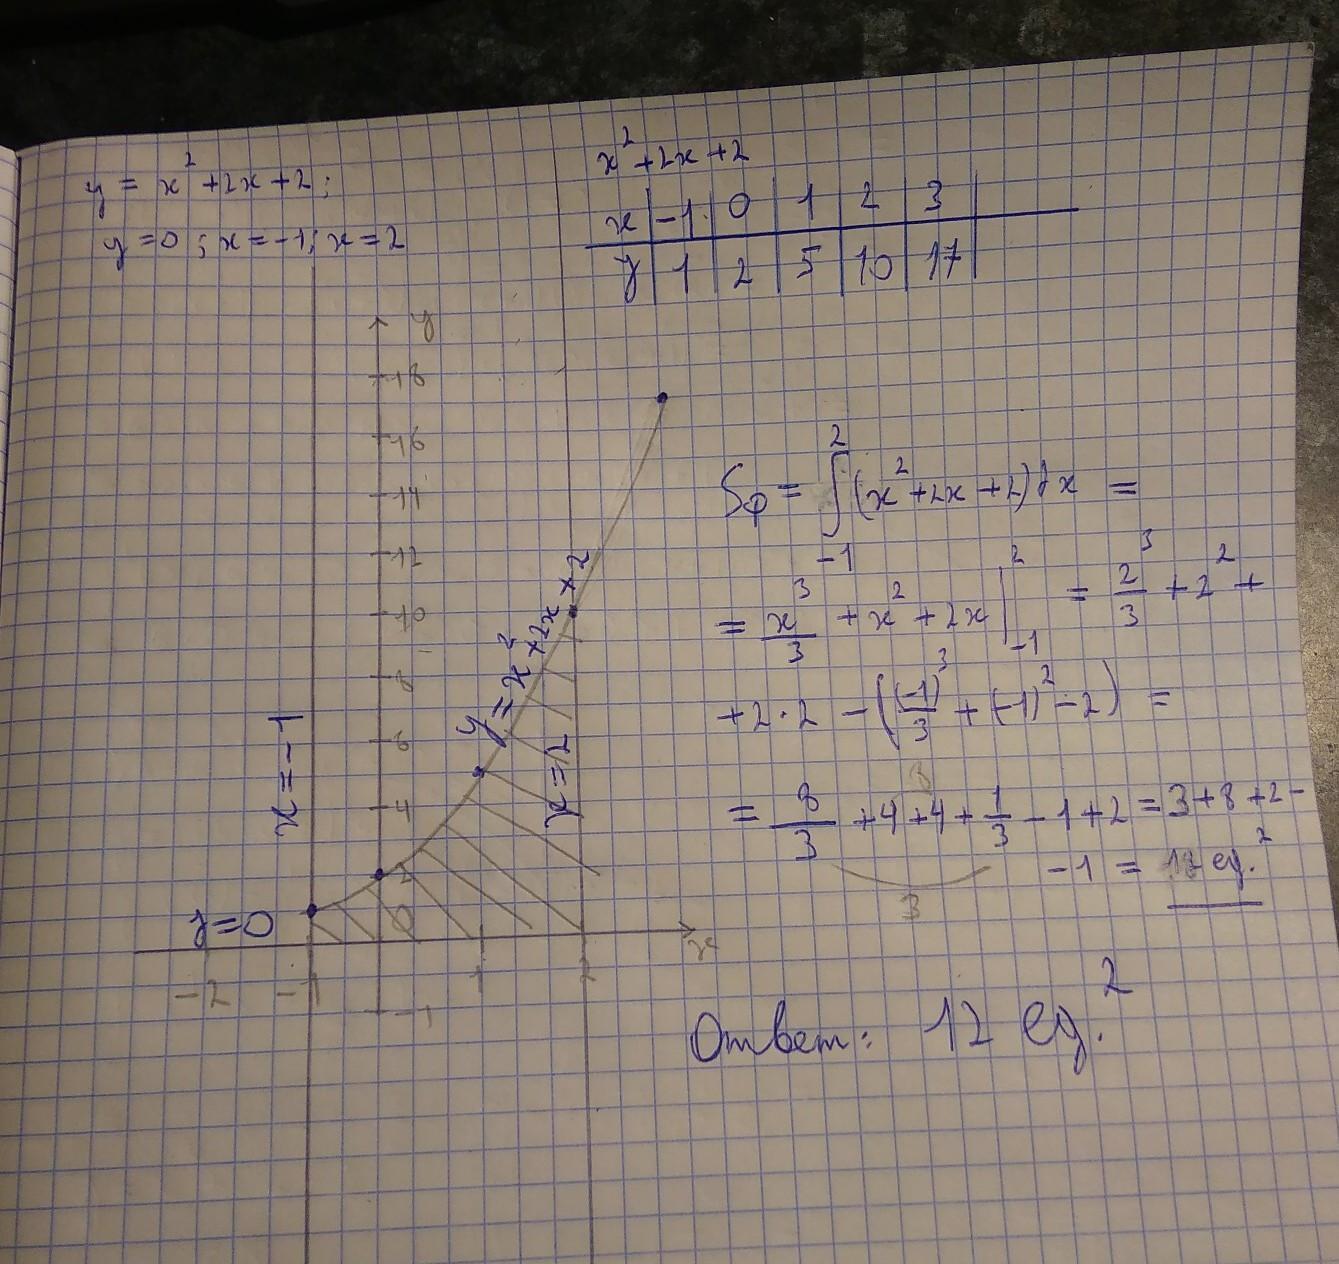 y = x² + 2x + 2;
y = 0; x = -1; x = 2
x² + 2x + 2
x | -1 | 0 | 1 | 2 | 3
y | 1 | 2 | 5 | 10 | 17
y
18
16
14
12
10
8
6
4
2
0
-1
-2 -1 1 2 x
x = -1
y = x² + 2x + 2
x = 2
y = 0
Sф = ∫₋₁² (x² + 2x + 2) dx =
= x³/3 + x² + 2x |₋₁² = 2³/3 + 2² +
+ 2 · 2 - ((-1)³/3 + (-1)² - 2) =
8
= 8/3 + 4 + 4 + 1/3 - 1 + 2 = 3 + 8 + 2 -
3
- 1 = 12 ед.²
Ответ: 12 ед.²